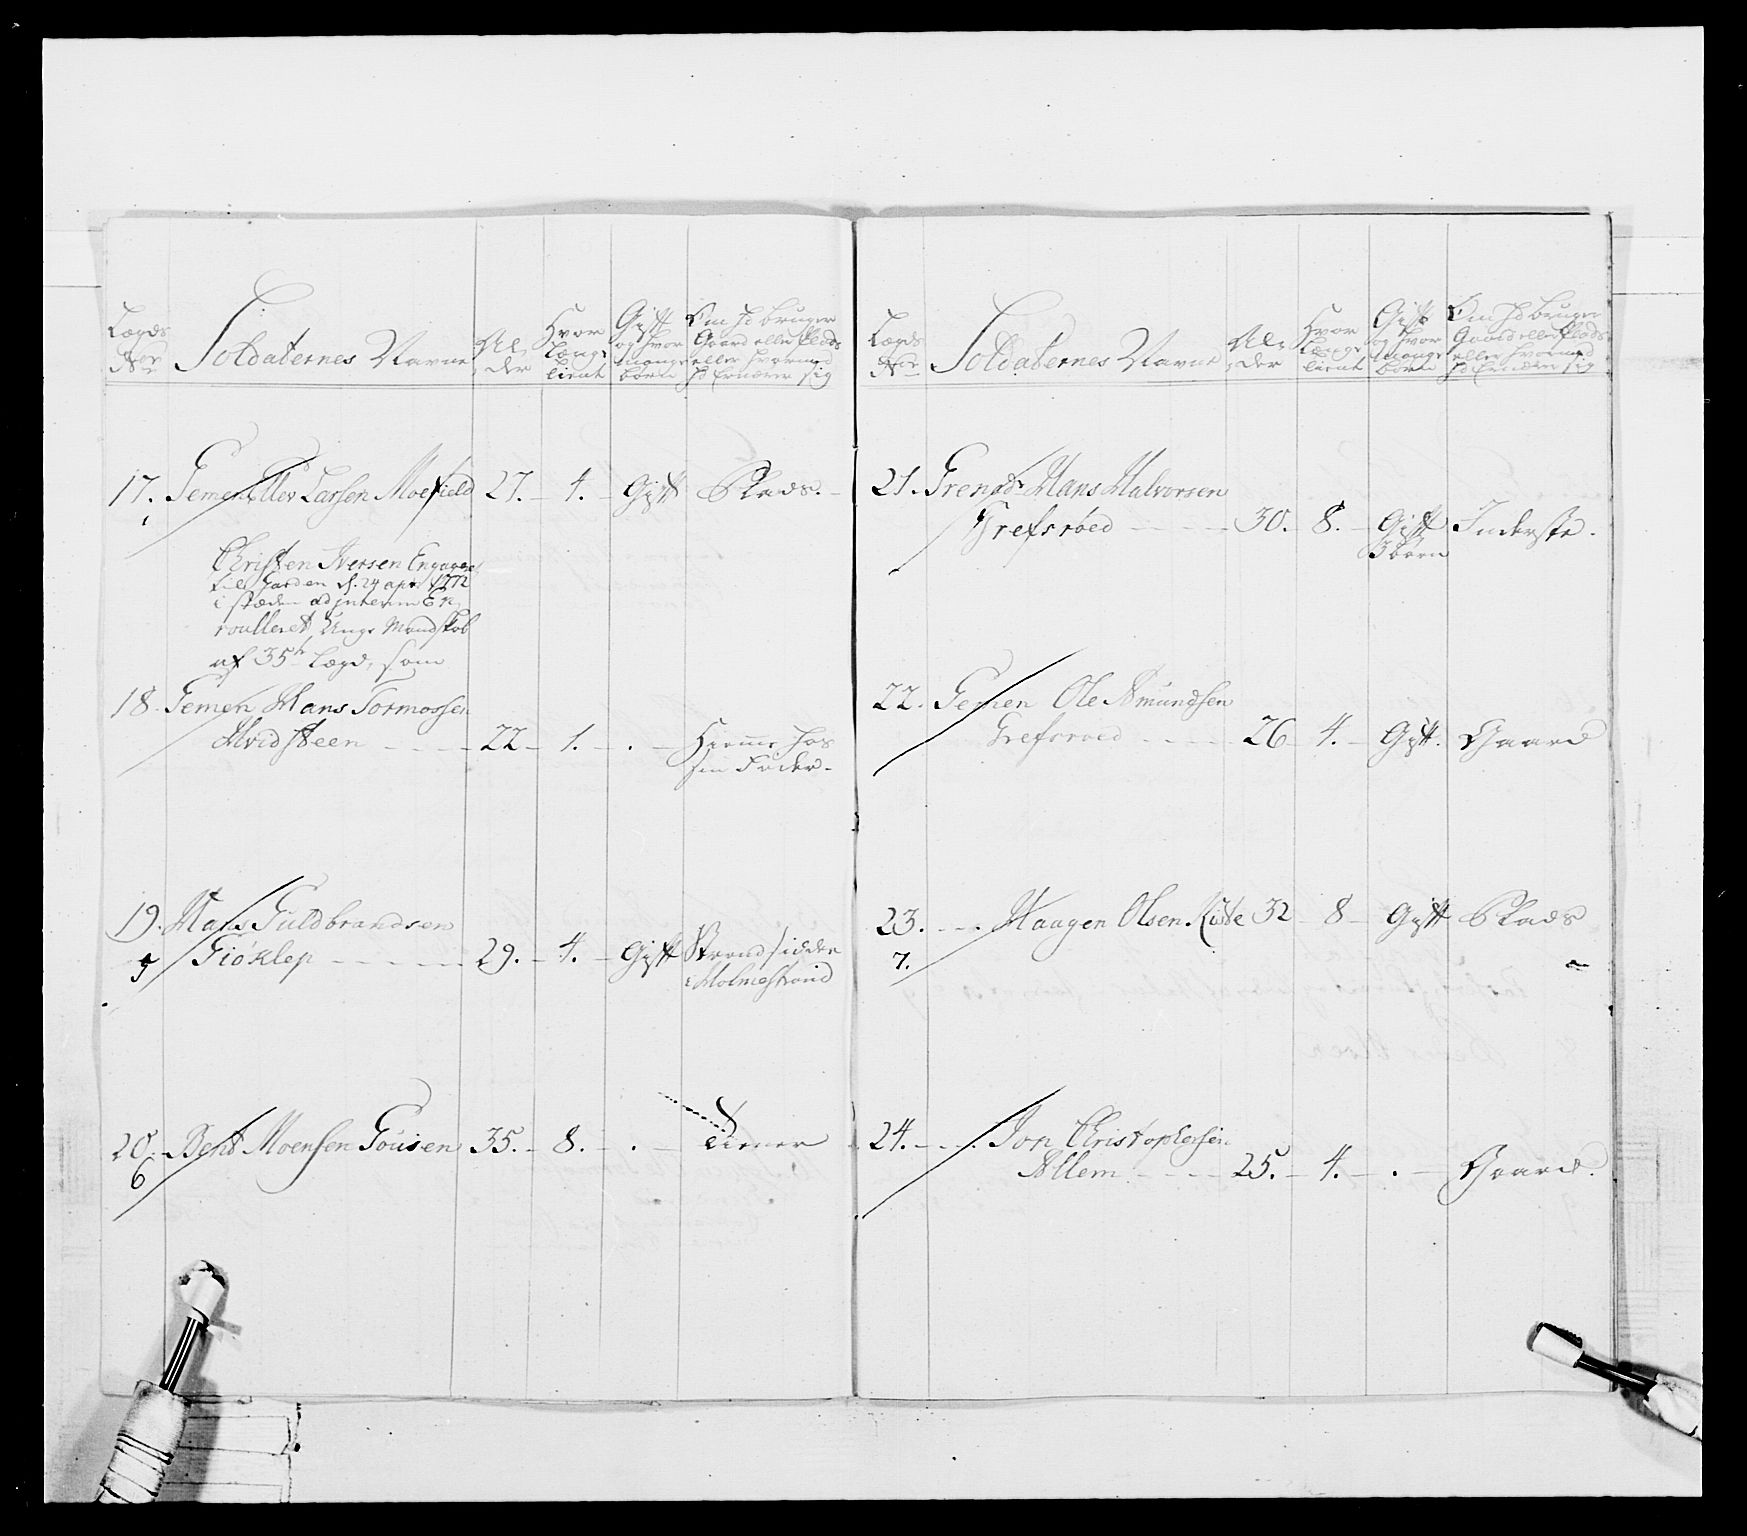 Lægds
No
Soldaternes Navne
Al
der
Hvor
Længe
tient
Gift
og hvor
mange
børn
Om hd bruger
Gaard eller Plads
eller hvormed
hd Ernærer sig
17. Gemen Ellev Larsen Moefield 27. 4. Gift Plads.
Christen Iversen Engageret
til Garden d. 24 apr 1772
i stæden ad interim En
roulleret Unge Mandskab
af 35 Lægd, som
18. Gemen Hans Tormossen
Hvidsteen 22 1. . Hiemme hos
sin Fader.
19. Hans Guldbrandsen
5 Giøklep 29. 4. Gift Strandsidder
i Holmestrand
20. Bent Moensen Gousen 35. 8. . Tiener
6
Lægds
No
Soldaternes Navne
Al
der
Hvor
Længe
tient
Gift
og hvor
mange
børn
Om hd bruger
Gaard eller Plads
eller hvormed
hd Ernærer sig
21. Grenadr Hans Halvorsen
Grefsrøed 30. 8. Gift Inderste.
3 børn
22. Gemen Ole Amundsen
Grefsroed 26 4. Gift. Gaard
23. Haagen Olsen Røste 32 8 Gift Plads
7.
24. Jon Christophersen
Allem 25. 4. . Gaard.